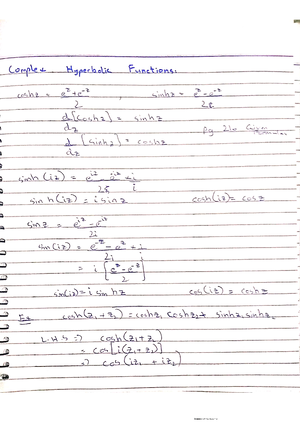 Complex Hyperbolic Functions:
cosh z = e^z + e^-z / 2 , sinh z = e^z - e^-z / 2
d/dz [cosh z] = sinh z
d/dz [sinh z] = cosh z
Pg 216
sinh (iz) = e^iz - e^-iz / 2 · i/i
sin h(iz) = i sin z cosh (iz) = cos z
sin z = e^iz - e^-iz / 2i
sin (iz) = e^-z - e^z / 2i · i/i
= i [e^z - e^-z / 2]
sin(iz) = i sin hz cos (iz) = cosh z
Ex cosh (z1 + z2) = cosh z1 cosh z2 + sinh z1 sinh z2
L.H.S => cosh (z1 + z2)
= cos [i(z1 + z2)]
=> cos (iz1 + iz2)